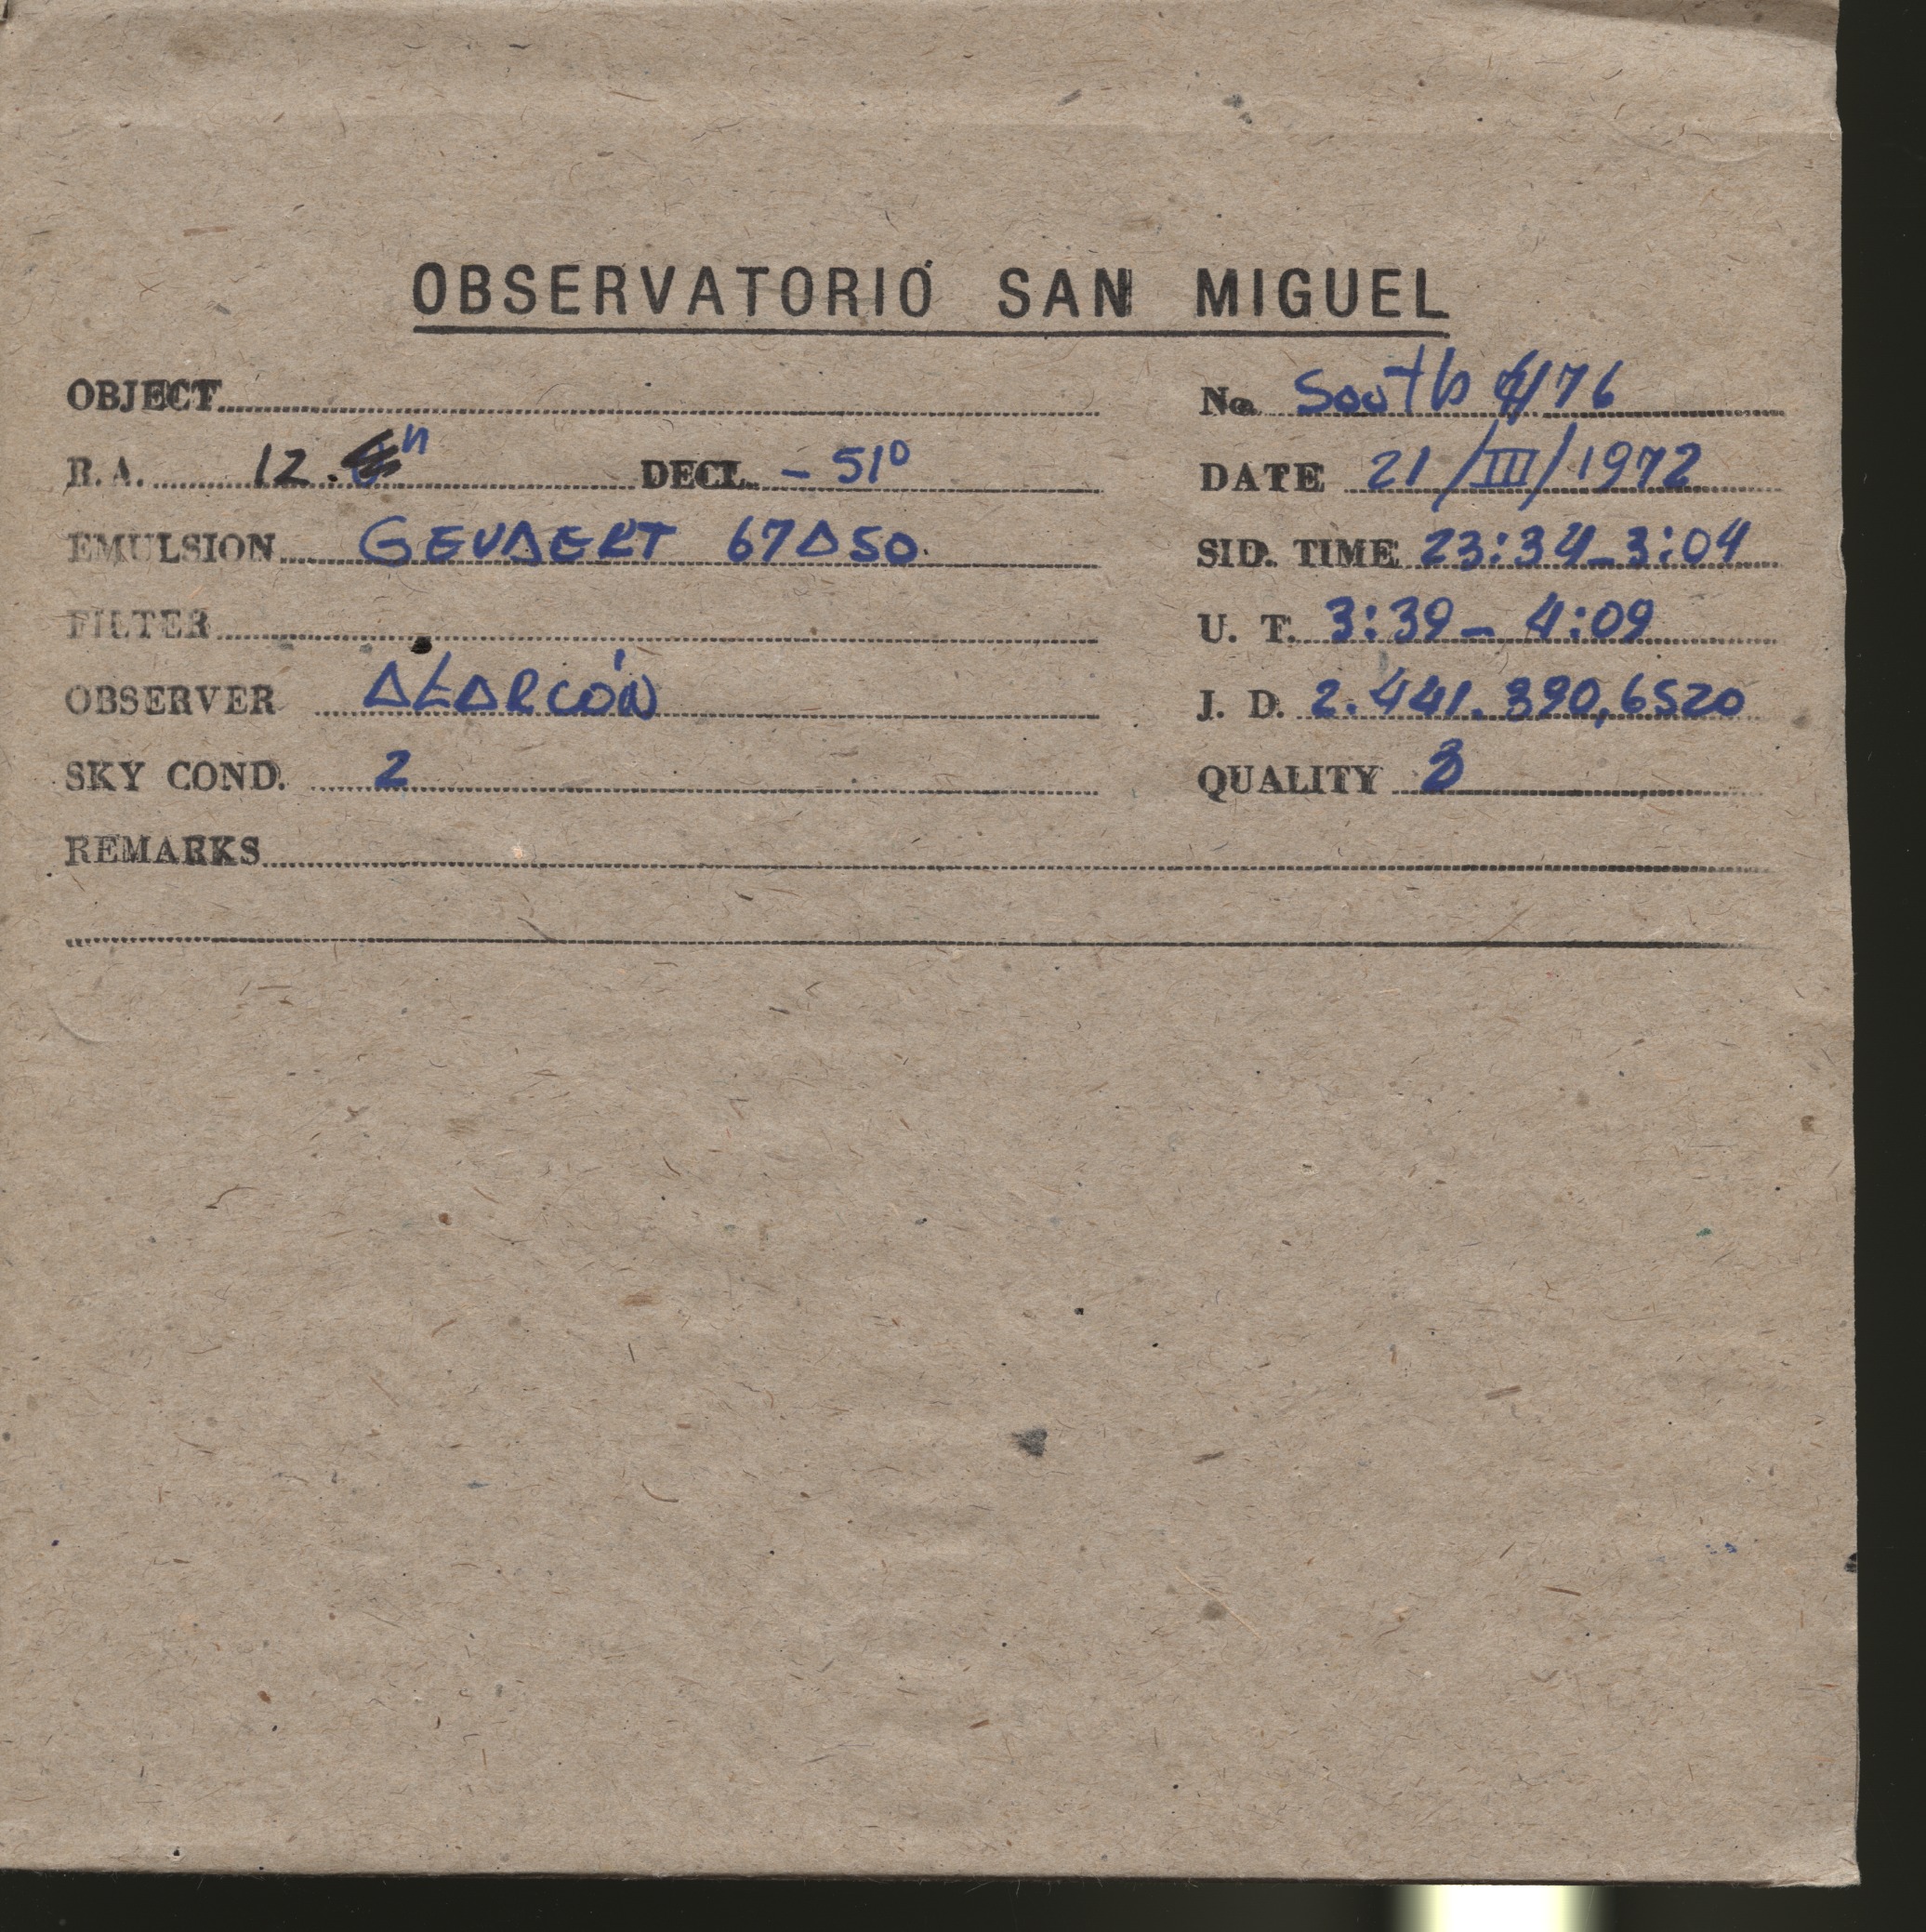 OBSERVATORIO SAN MIGUEL
OBJECT
No. South 76
R.A. 12. h DECL. - 51°
DATE 21/III/1972
EMULSION GEVAERT 67A50
SID. TIME 23:34-3:04
FILTER
U. T. 3:39 - 4:09
OBSERVER ALARCÓN
J. D. 2.441.390,6520
SKY COND. 2
QUALITY 3
REMARKS